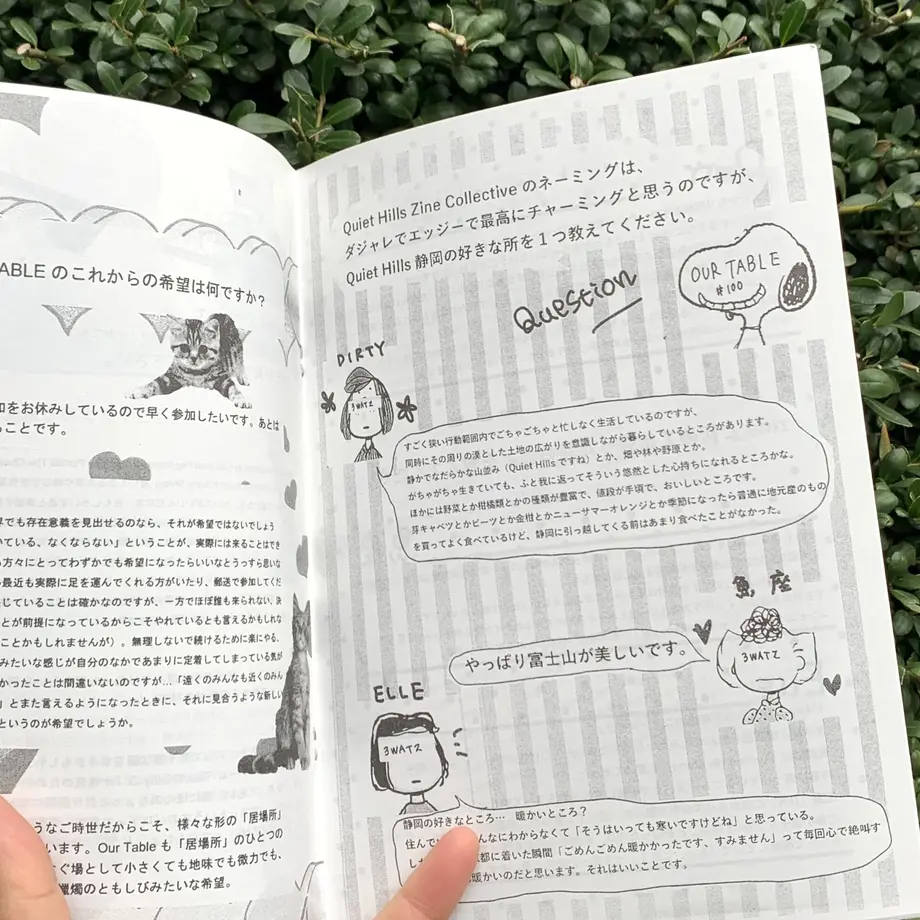 ABLE のこれからの希望は何ですか？
をお休みしているので早く参加したいです。あとは
ことです。
界でも存在意義を見出せるのなら、それが希望ではないでしょう
いている、なくならない」ということが、実際には来ることはでき
方々にとってわずかでも希望になったらいいなとうっすら思いな
最近も実際に足を運んでくれる方がいたり、郵送で参加してくだ
じていることは確かなのですが、一方でほぼ誰も来られない、決
とが前提になっているからこそやれているとも言えるかもしれな
ことかもしれませんが）。無理しないで続けるために楽にやる、
みたいな感じが自分のなかであまりに定着してしまっている気が
かったことは間違いないのですが…「遠くのみんなも近くのみん
」とまた言えるようになったときに、それに見合うような新しい
というのが希望でしょうか。
うなご時世だからこそ、様々な形の「居場所」
います。Our Table も「居場所」のひとつの
ぐ場として小さくても地味でも微力でも、
蝋燭のともしびみたいな希望。
Quiet Hills Zine Collective のネーミングは、
ダジャレでエッジーで最高にチャーミングと思うのですが、
Quiet Hills 静岡の好きな所を１つ教えてください。
Question
OUR TABLE
#100
DIRTY
3WATZ
すごく狭い行動範囲内でごちゃごちゃと忙しなく生活しているのですが、
同時にその周りの漠とした土地の広がりを意識しながら暮らしているところがあります。
静かでなだらかな山並み（Quiet Hills ですね）とか、畑や林や野原とか。
がちゃがちゃ生きていても、ふと我に返ってそういう悠然とした心持ちになれるところかな。
ほかには野菜とか柑橘類とかの種類が豊富で、値段が手頃で、おいしいところです。
芽キャベツとかビーツとか金柑とかニューサマーオレンジとか季節になったら普通に地元産のもの
を買ってよく食べているけど、静岡に引っ越してくる前はあまり食べたことがなかった。
魚座
3WATZ
やっぱり富士山が美しいです。
ELLE
3WATZ
静岡の好きなところ… 暖かいところ？
住んで んなにわからなくて「そうはいっても寒いですけどね」と思っている。
し 都に着いた瞬間「ごめんごめん暖かかったです、すみません」って毎回心で絶叫す
暖かいのだと思います。それはいいことです。